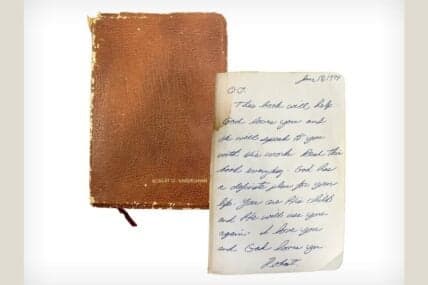 ROBERT G. KARDASHIAN
June 18, 1994
O.J.
This book will help.
God loves you and
He will speak to you
with His words. Read this
book everyday. God has
a definite plan for your
life. You are His child
and He will use you
again. I love you
and God loves you.
Robert